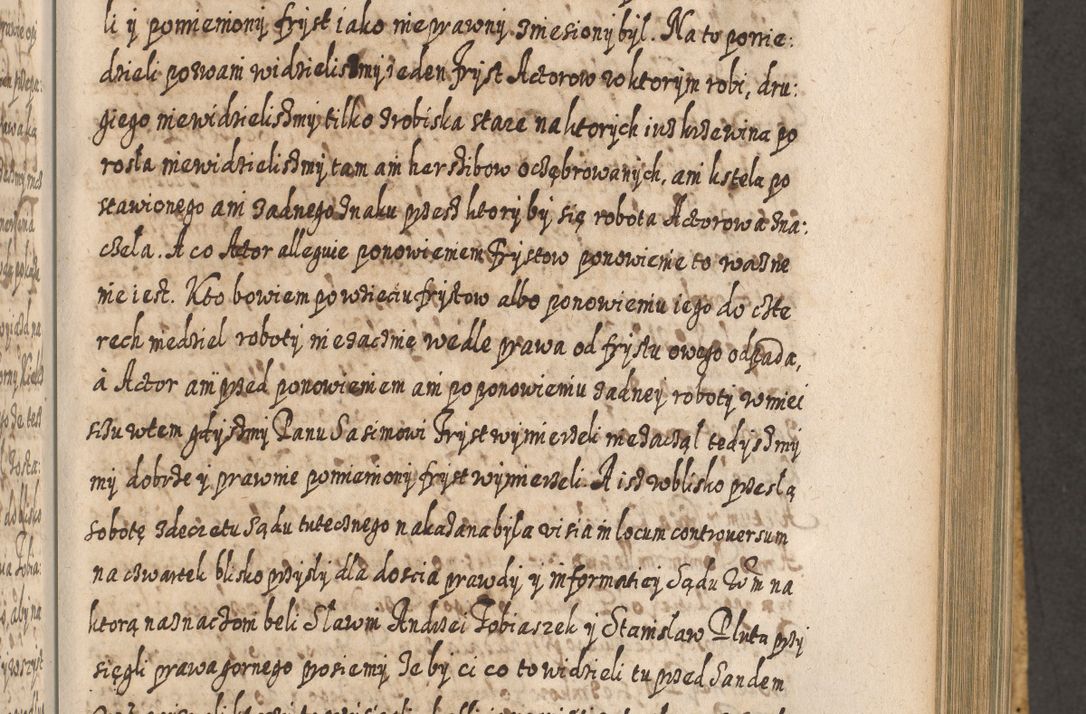 li ÿ pomiemonÿ frÿst iako nieprawnÿ zmiesionÿ bÿl. Na to powie:
dzieli pozwani widzielizmÿ ieden frÿst Actorow w ktorÿm robi, dru:
giego niewidzielizmÿ tilko zrobiska stare na ktorÿch iuz krzewina po
rosła niewidzielizmÿ tam ani herzibow oczębrowanÿch, ani kstela po
stawionego ani zadnego znaku przez ktorÿ bÿ się robota Actorowa zna:
czela. A co Actor alleguie ponowieniem frÿstow ponowienie to wazne
nie iest. Kto bowiem po wzieciu frÿstow albo ponowieniu iego do czte
rech niedziel robotÿ niezacznie wedle prawa od frÿstu owego odpada,
à Actor ani przed ponowieniem ani po ponowieniu zadneÿ robotÿ w miei
scu wtem gdÿzmÿ Panu Sasimowi frÿst wÿmierzeli niezaczął tedÿzmÿ
mÿ dobrze ÿ prawnie pomienionÿ frÿst wÿmierzeli. A isz w blisko przeszłą
sobotę z decretu Sądu tutecznego nakazana bÿla visia in locum controversum
na czwartek blisko przÿszłÿ dla doscia prawdÿ ÿ informatieÿ Sądu
ktorą naznaczoni beli Slawni Andrzei Tobiaszek ÿ Stanislaw Pluta przÿ
sięgli prawa gornego prosiemÿ ze bÿ ci co to widzieli tu przed Sandem